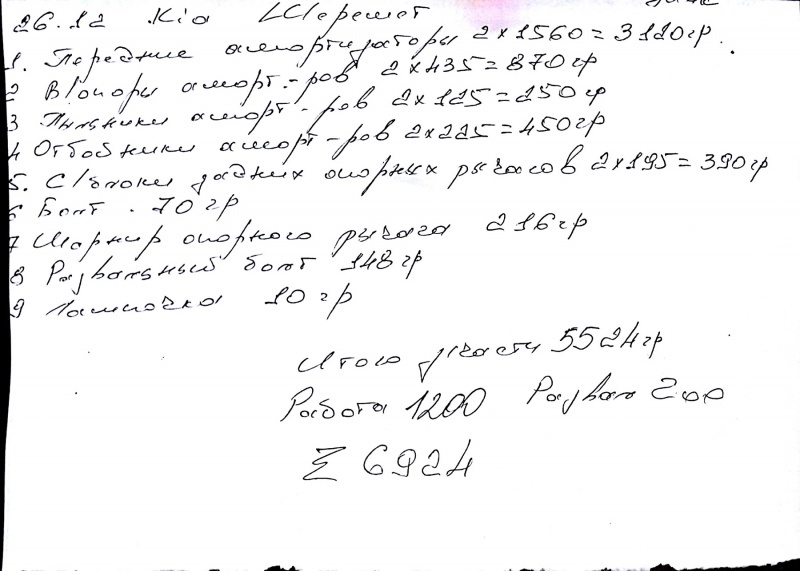 26.12 Kia Шеремет
1. Передние амортизаторы 2x1560=3120гр.
2 В/опоры аморт.-ров 2x435=870гр
3 Пыльники аморт-ров 2x125=250гр
4 Отбойники аморт-ров 2x225=450гр
5. С/блоки задних опорных рычагов 2x195=390гр
6 Болт. 70гр
7 Шарнир опорного рычага 216гр
8 Развальный болт 148гр
9 Лампочка 10гр
Итого з/части 5524гр
Работа 1200 Развал 200
Σ 6924